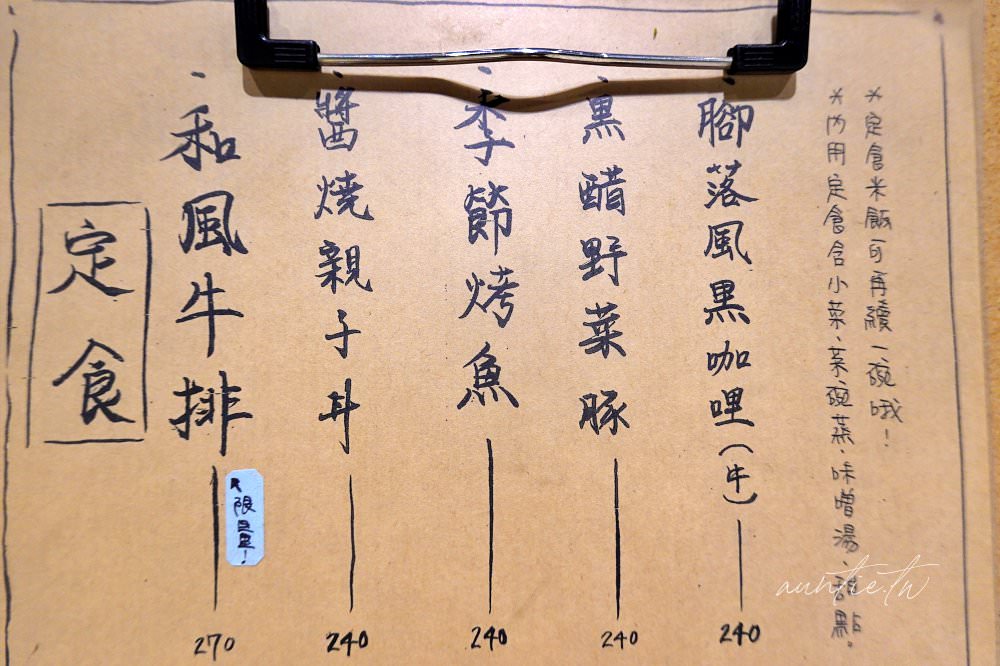 定食
·和風牛排 270
*限量!
·醬燒親子丼 240
·季節烤魚 240
·黑醋野菜豚 240
·腳落風黑咖哩(牛) 240
*定食米飯可再續一碗哦!
*內用定食含小菜、茶碗蒸、味噌湯、甜點。
auntie.tw